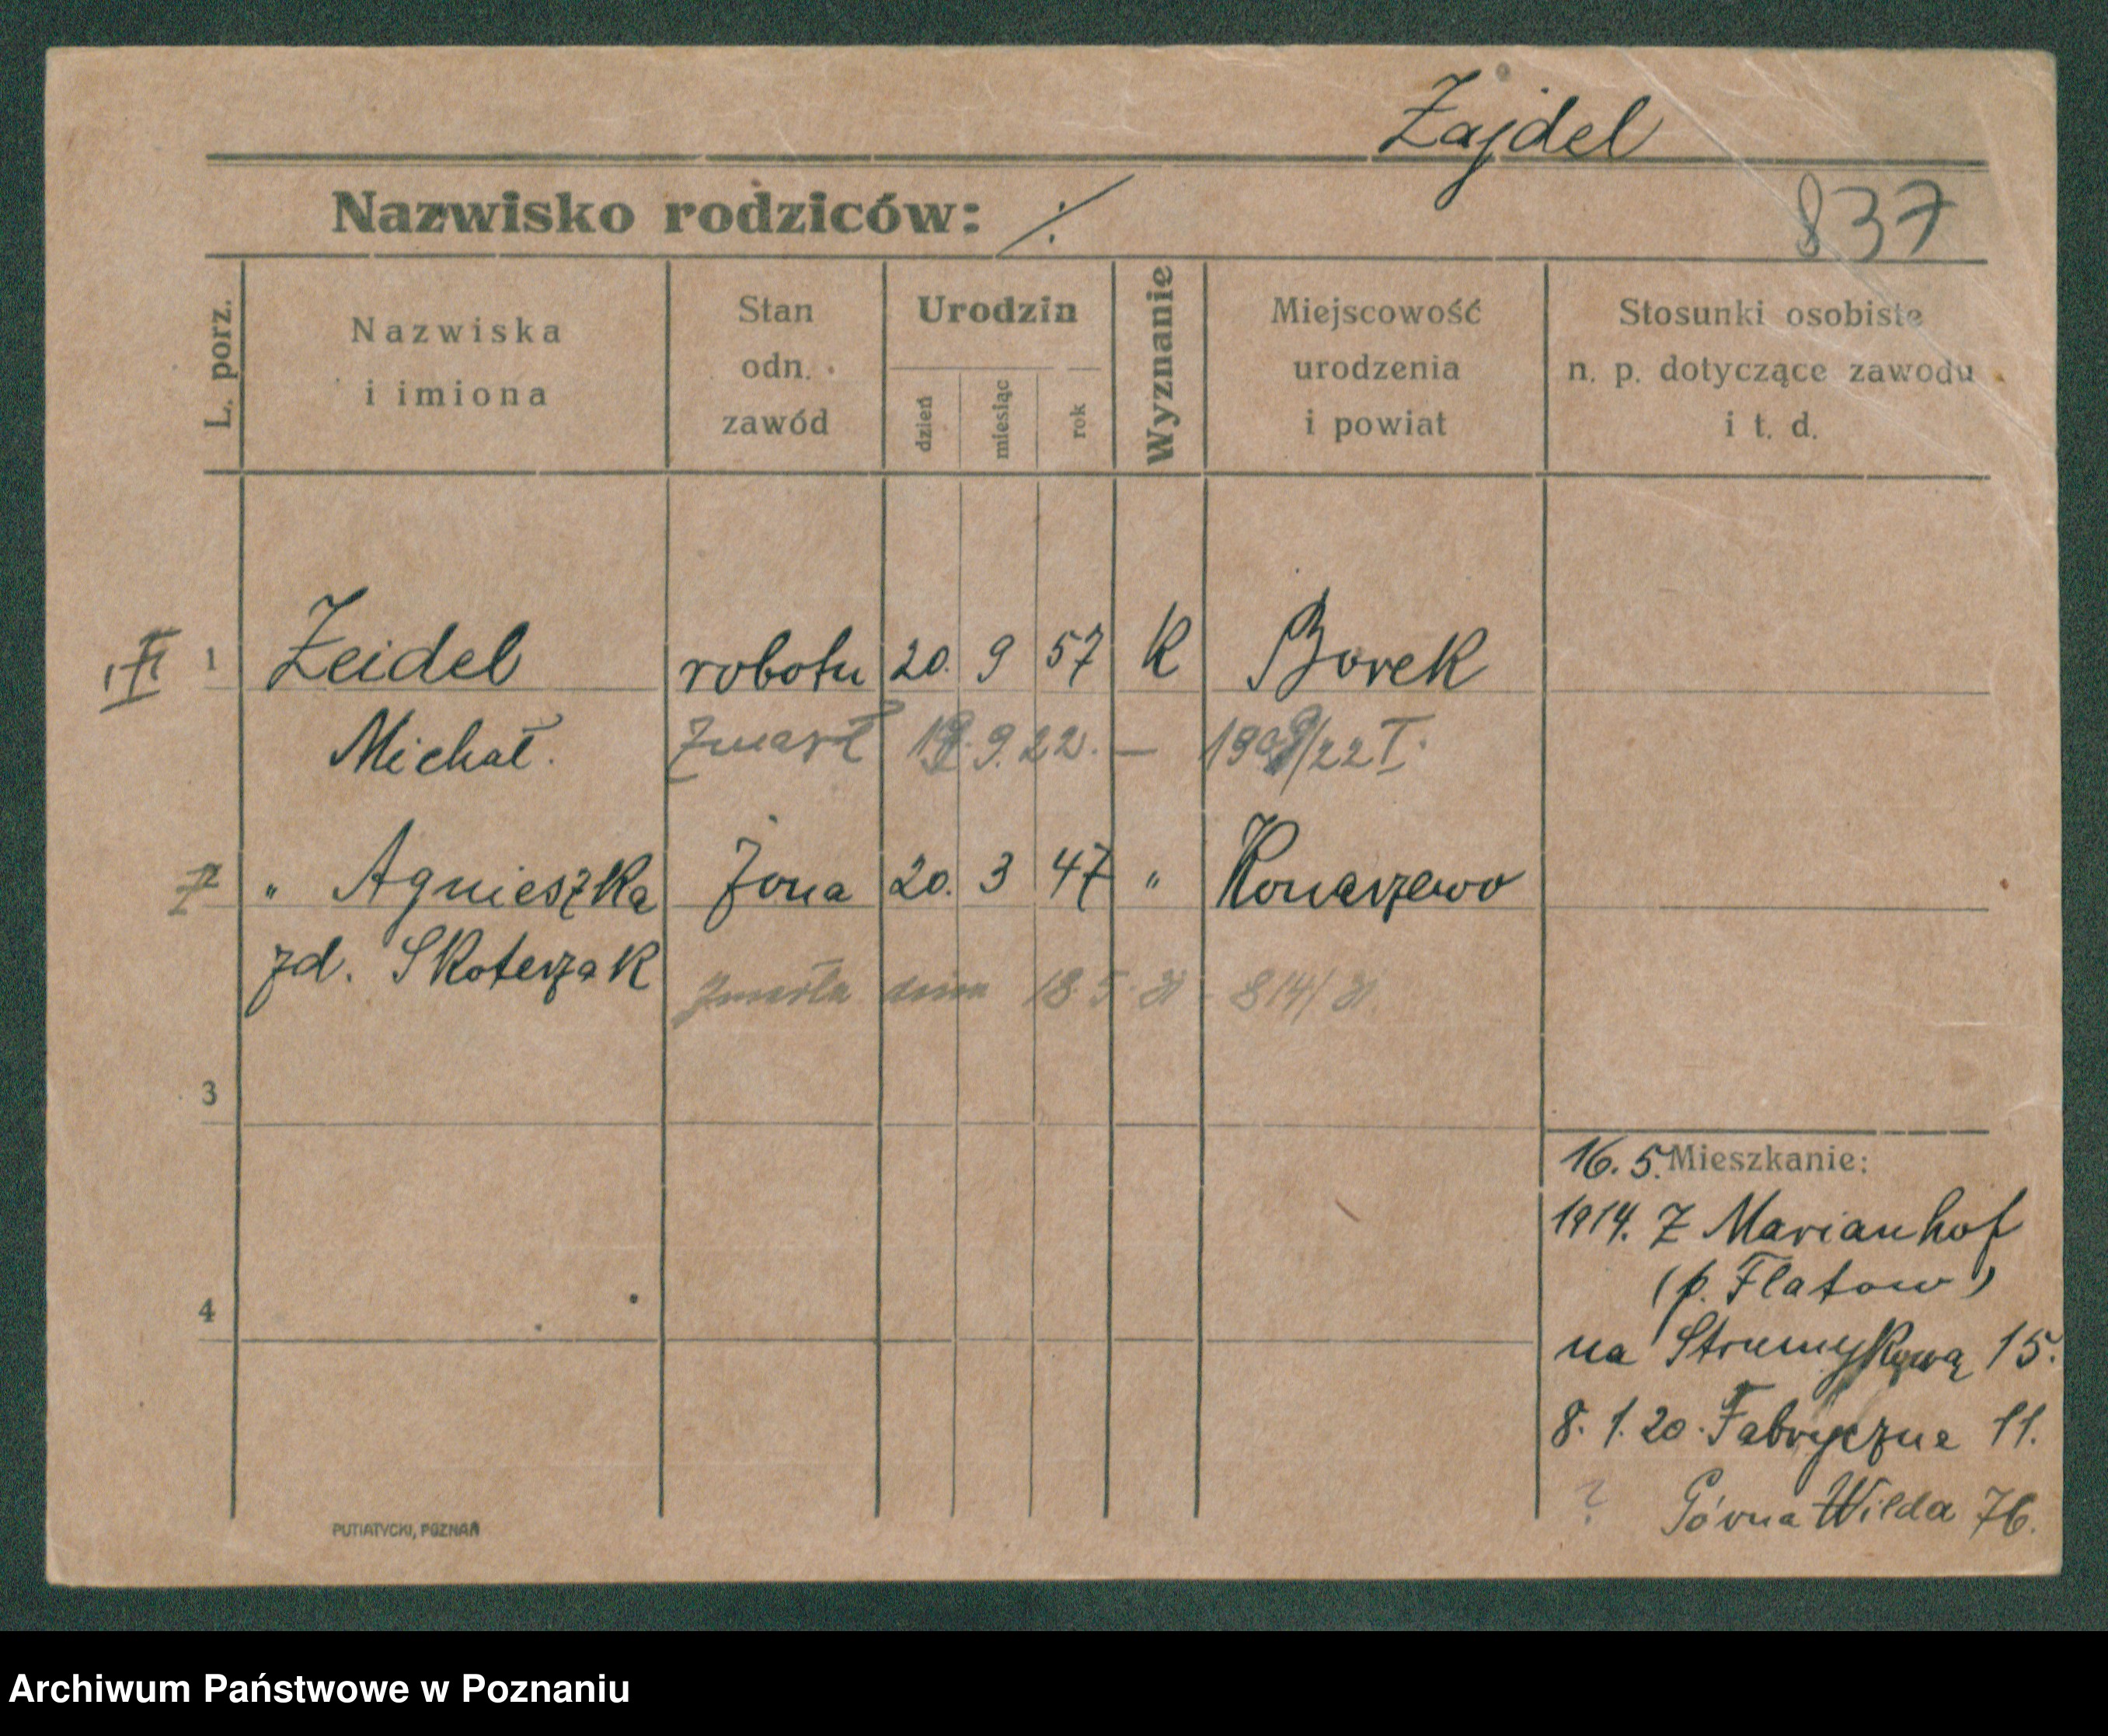 Zajdel
Nazwisko rodziców: ·/·
837
L. porz.
Nazwiska
i imiona
Stan
odn.
zawód
Urodzin
dzień
miesiąc
rok
Wyznanie
Miejscowość
urodzenia
i powiat
Stosunki osobiste
n. p. dotyczące zawodu
i t. d.
1 Zeidel robotn 20. 9 57 K Borek
Michał. Zmarł 9. 22. — /22 I.
" Agnieszka żona 20. 3 47 " Konarzewo
zd. Skoterzak
Zmarła dnia 18.5.21 - 814/21.
3
16. 5. Mieszkanie:
1914. Z Marianhof
(p. Flatow)
na Strumykową 15.
4
8. 1. 20. Fabryczna 11.
? Górna Wilda 76.
PUTIATYCKI, POZNAŃ
Archiwum Państwowe w Poznaniu